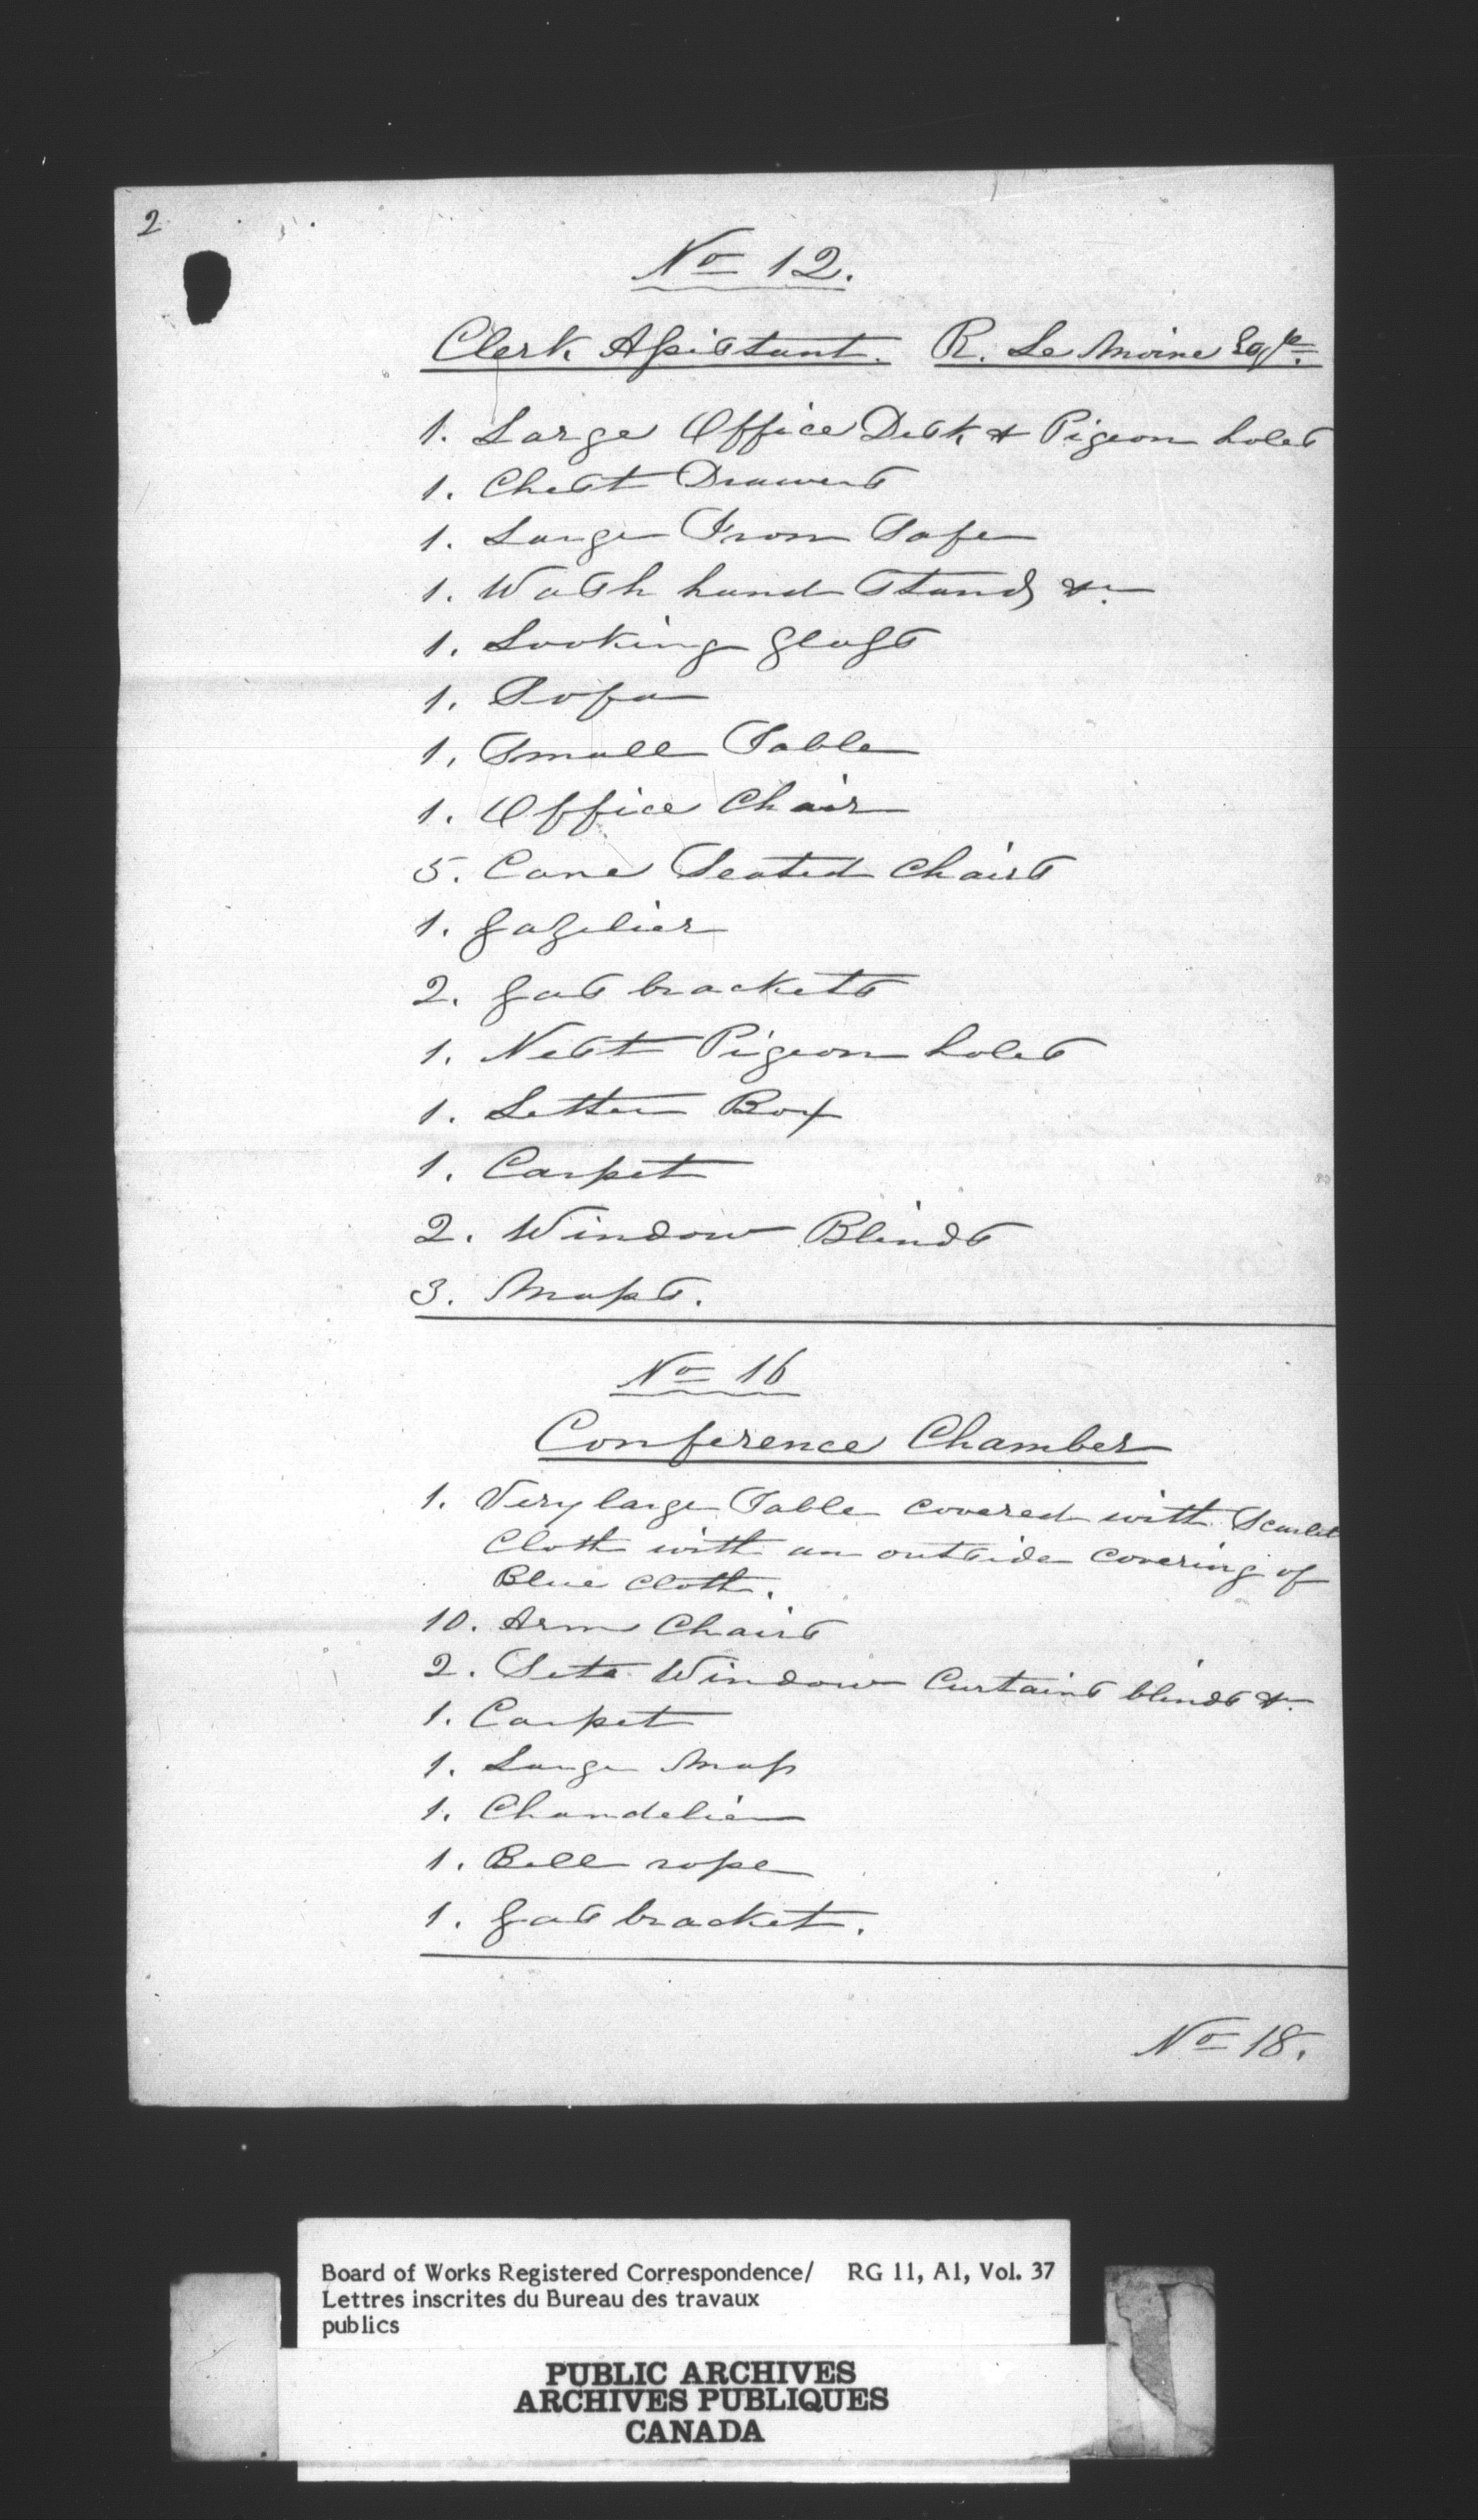 2
No 12.
Clerk Assistant. R. Le Moine Esqre.
1. Large Office Desk & Pigeon holes
1. Chest Drawers
1. Large Iron Safe
1. Wash hand Stand &c
1. Looking glass
1. Sofa
1. Small Table
1. Office Chair
5. Cane Seated Chairs
1. gazelier
2. gas brackets
1. Nest Pigeon holes
1. Letter Box
1. Carpet
2. Window Blinds
3. Maps.
No 16
Conference Chamber
1. Very large Table covered with Scarlet
Cloth with an outside covering of
Blue Cloth.
10. Arm Chairs
2. Sets Window Curtains blinds &c.
1. Carpet
1. Large Map
1. Chandelier
1. Bell rope
1. gas bracket.
No 18.
Board of Works Registered Correspondence/ RG 11, A1, Vol. 37
Lettres inscrites du Bureau des travaux
publics
PUBLIC ARCHIVES
ARCHIVES PUBLIQUES
CANADA